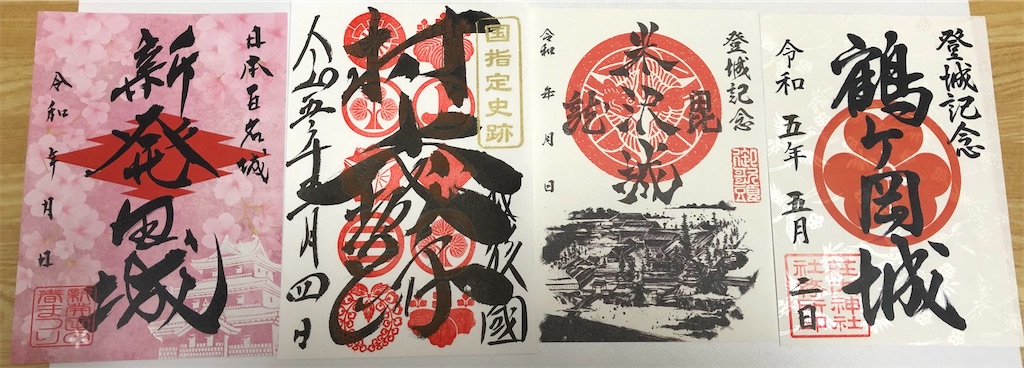 日本百名城
新発田城
令和 年 月 日
春まつり
国指定史跡
越後國
村上城
令和五年五月四日
登城記念
毘
米沢城
龍
令和 年 月 日
登城記念
鶴ヶ岡城
令和 五年 五月 二日
荘内神社